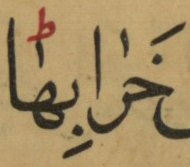 خَرٰابِهٰا ؕ